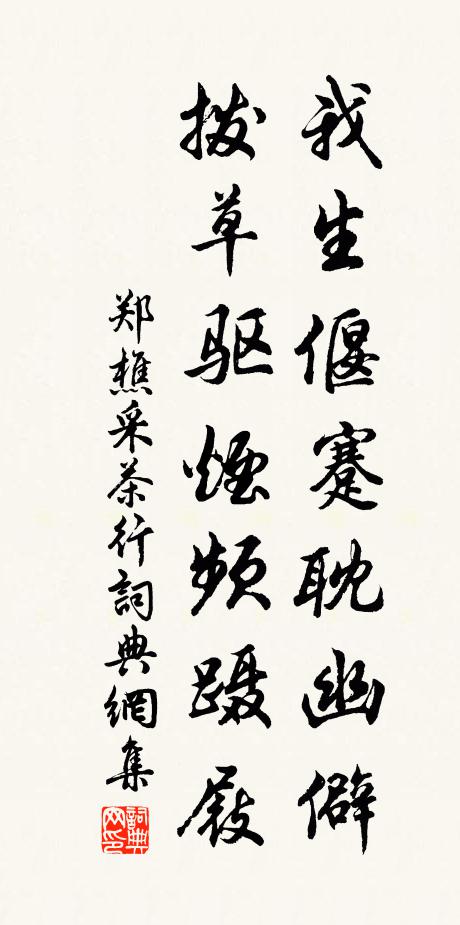 我生偃蹇耽幽僻
拨草驱烟频蹑屐
郑樵采茶行詞典網集
詞典网印